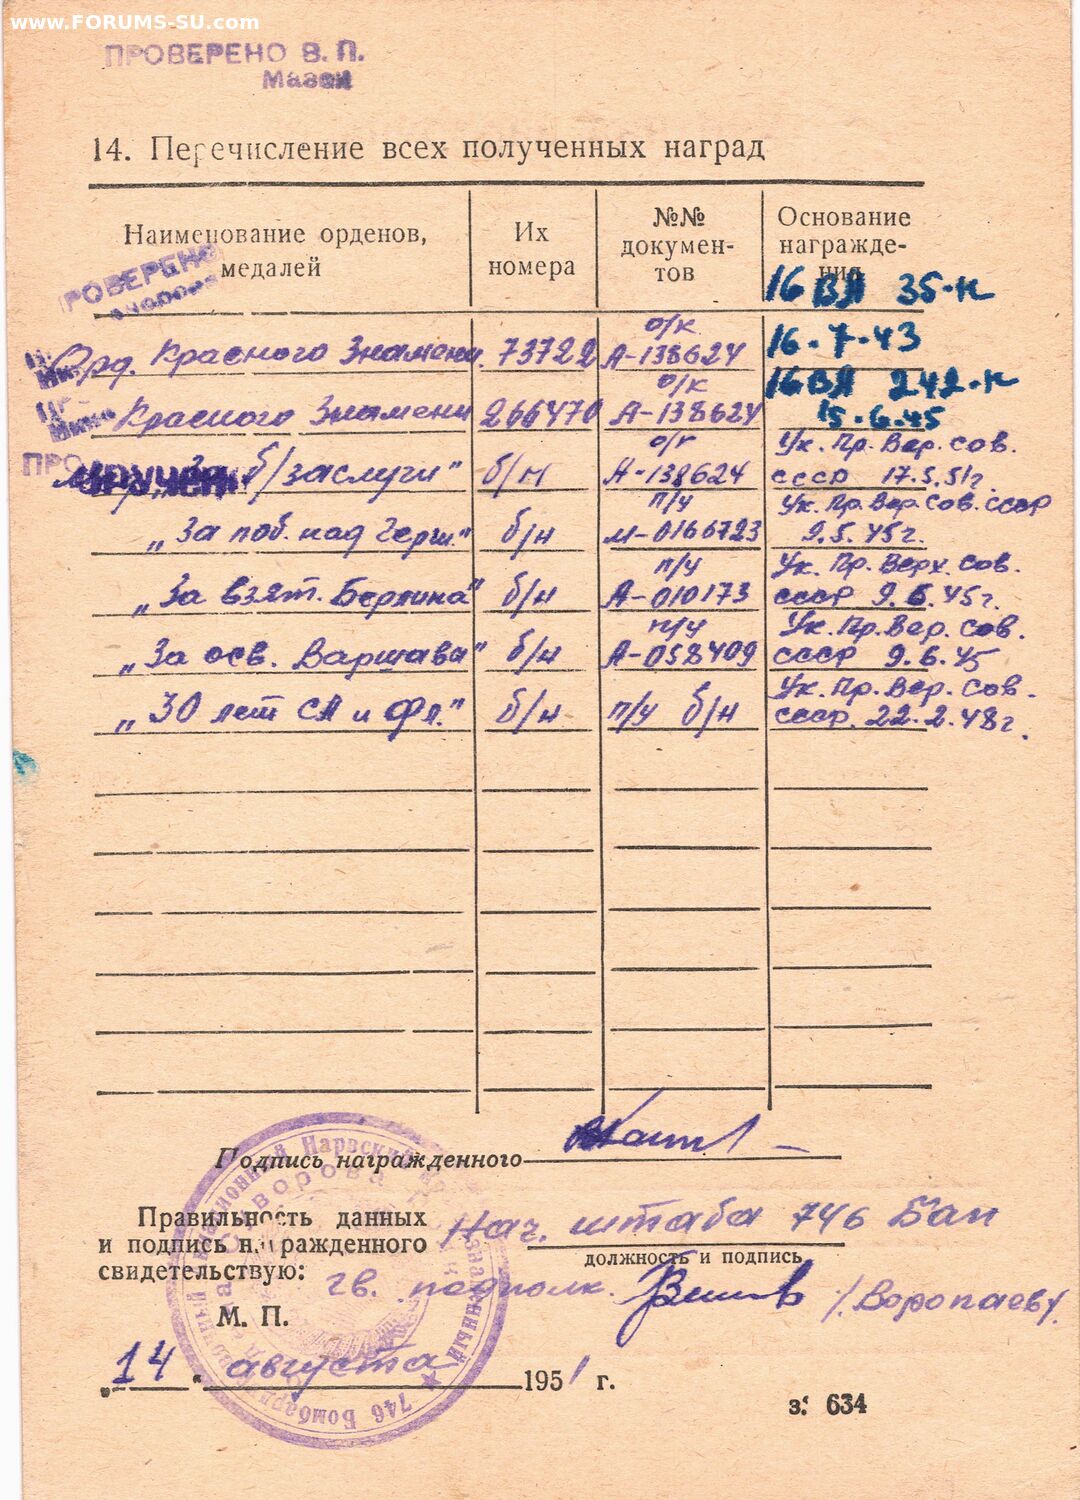 www.FORUMS-SU.com
ПРОВЕРЕНО В. П.
14. Перечисление всех полученных наград
Наименование орденов, медалей
Их номера
№№ докумен-тов
Основание награжде-ния
ПРОВЕРЕНО
16 ВА 35-н
Орд. Красного Знамени. 73722 о/к А-138624 16.7.43
Красного Знамени 266470 о/к А-138624 16 ВА 242-н 15.6.45
За б/заслуги" б/н о/к А-138624 Ук. Пр. Вер. Сов. СССР 17.5.51г.
ВРУЧЕН
„За поб. над Герм." б/н п/у М-0166723 Ук. Пр. Вер. Сов. СССР 9.5.45г.
„За взят. Берлина" б/н п/у А-010173 Ук. Пр. Верх. Сов. СССР 9.6.45г.
„За осв. Варшавы" б/н п/у А-058409 Ук. Пр. Вер. Сов. СССР 9.6.45
„30 лет СА и Фл." б/н п/у б/н Ук. Пр. Вер. Сов. СССР. 22.2.48г.
Подпись награжденного
Правильность данных
и подпись награжденного
свидетельствую:
Нач. штаба 746 БАП
должность и подпись
гв. подполк. /Воропаев/
М. П.
„14" августа 1951 г.
з. 634
746 Бомбардировочный авиационный Нарвский Краснознаменный
Суворова